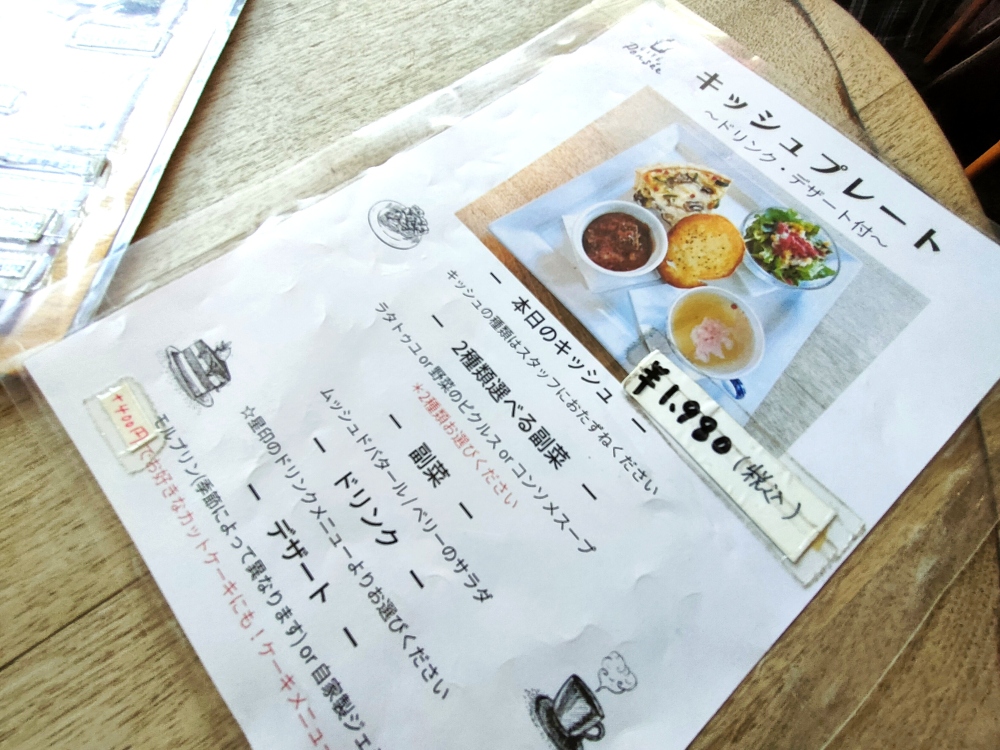 Pensée
キッシュプレート
～ドリンク・デザート付～
¥1,980(税込)
ー 本日のキッシュ ー
キッシュの種類はスタッフにおたずねください
ー 2種類選べる副菜 ー
ラタトゥユ or 野菜のピクルス or コンソメスープ
*2種類お選びください
ー 副菜 ー
ムッシュドパタール/ベリーのサラダ
ー ドリンク ー
☆星印のドリンクメニューよりお選びください
ー デザート ー
モルブリン(季節によって異なります) or 自家製ジェ
+400円でお好きなカットケーキにも!ケーキメニュー